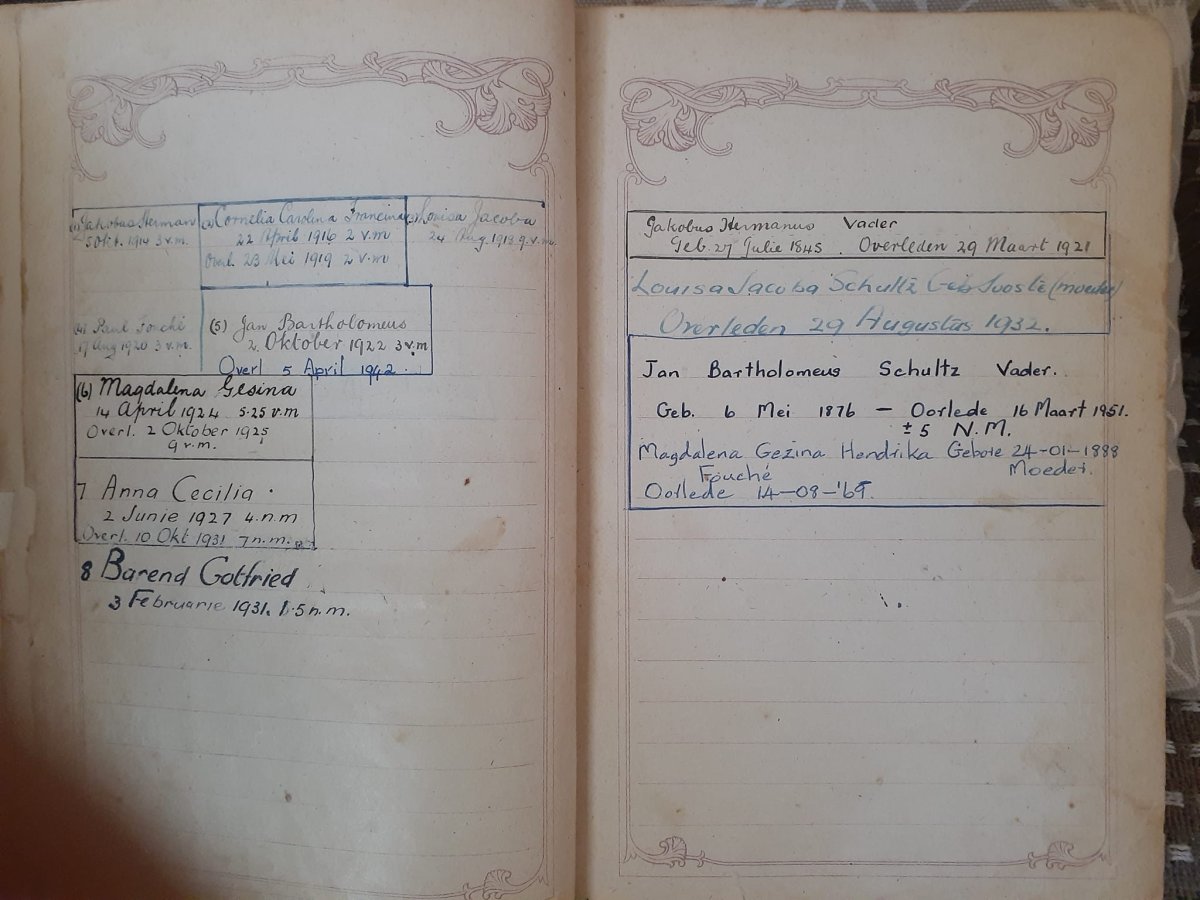 (1) Jakobus Herman
5 Okt. 1914 3 v.m.
(2) Cornelia Carolina Francina
22 April 1916 2 v.m
Overl. 23 Mei 1919 2 v.m
(3) Louisa Jacoba
24 Aug. 1918 9. v.m.
(4) Paul Fouché
17 Aug 1920 3 v.m.
(5) Jan Bartholomeus
2. Oktober 1922 3 v.m
Overl 5 April 1942.
(6) Magdalena Gesina
14 April 1924 5.25 v.m
Overl. 2 Oktober 1925
9 v.m.
7 Anna Cecilia.
2 Junie 1927 4.n.m
Overl. 10 Okt 1931 7 n.m.
8 Barend Gotfried
3 Februarie 1931. 1.5 n.m.
Jakobus Hermanus Vader
Geb. 27 Julie 1845. Overleden 29 Maart 1921
Louisa Jacoba Schultz Geb Jooste (moeder)
Overleden 29 Augustus 1932.
Jan Bartholomeus Schultz Vader.
Geb. 6 Mei 1876 – Oorlede 16 Maart 1951.
±5 N.M.
Magdalena Gezina Hendrika Gebore 24-01-1888
Fouché Moeder.
Oorlede 14-08-'69.